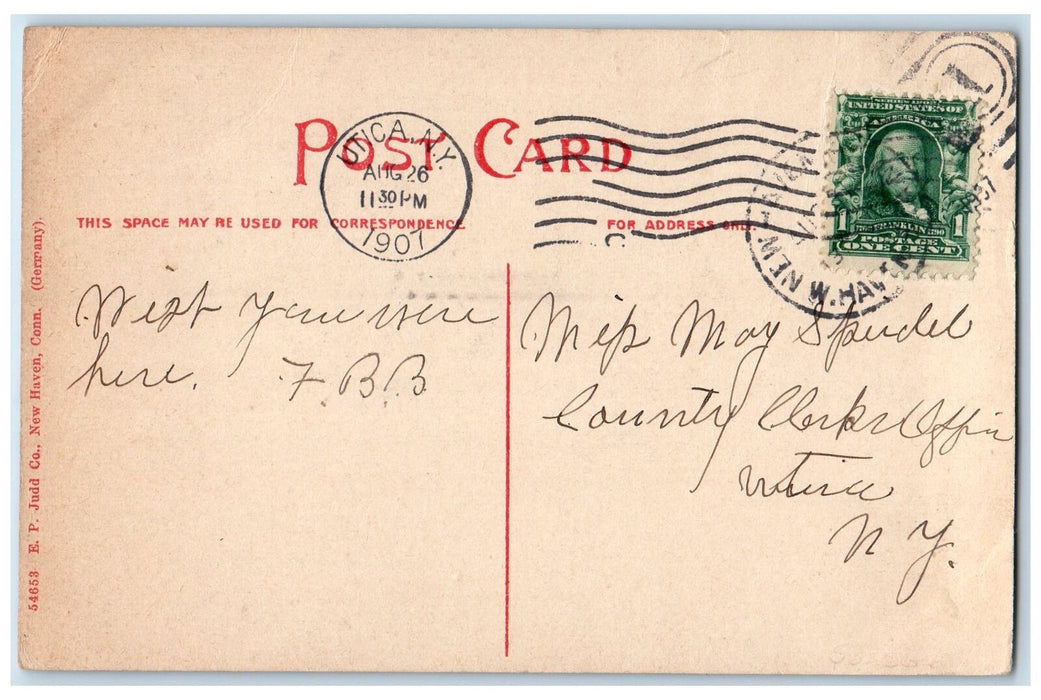 POST CARD
UTICA, N.Y.
AUG 26
11 30 PM
1907
THIS SPACE MAY BE USED FOR CORRESPONDENCE
FOR ADDRESS ONLY.
SERIES 1902
UNITED STATES OF
AMERICA
1 FRANKLIN 1
POSTAGE
ONE CENT
NEW HAVEN
W. HAVEN
Wish you were
here. F B B
Miss May
County Clerks Office
Utica
N Y.
54653 E. P. Judd Co., New Haven, Conn. (Germany).